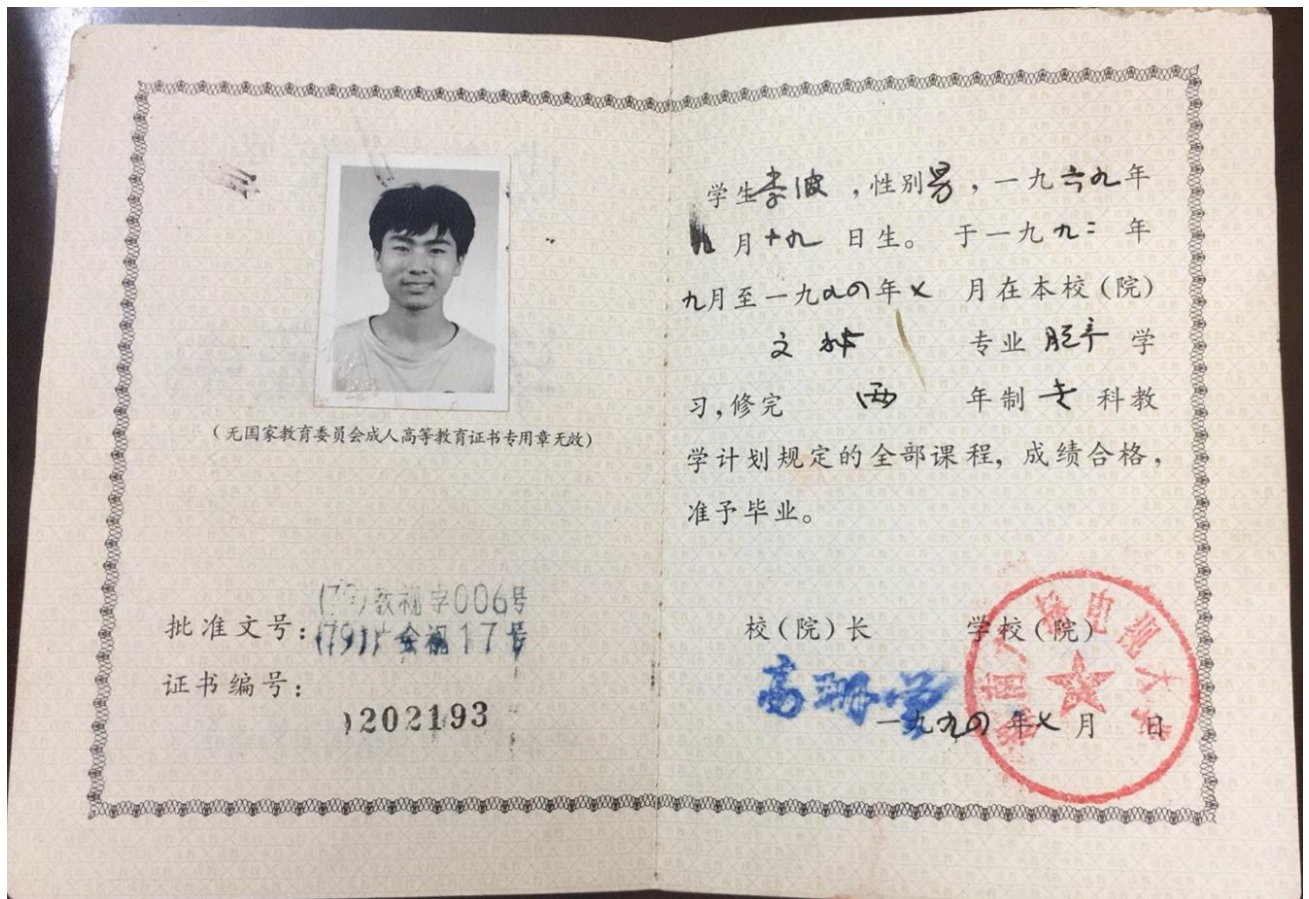 (无国家教育委员会成人高等教育证书专用章无效)
批准文号:(79)教视字006号
(791)广全视17号
证书编号:
)202193
学生李波,性别男,一九六九年
九月十九日生。于一九九二年
九月至一九九四年七月在本校(院)
文秘专业脱产学
习,修完两年制专科教
学计划规定的全部课程,成绩合格,
准予毕业。
校(院)长 学校(院)
一九九四年七月 日
广播电视大学